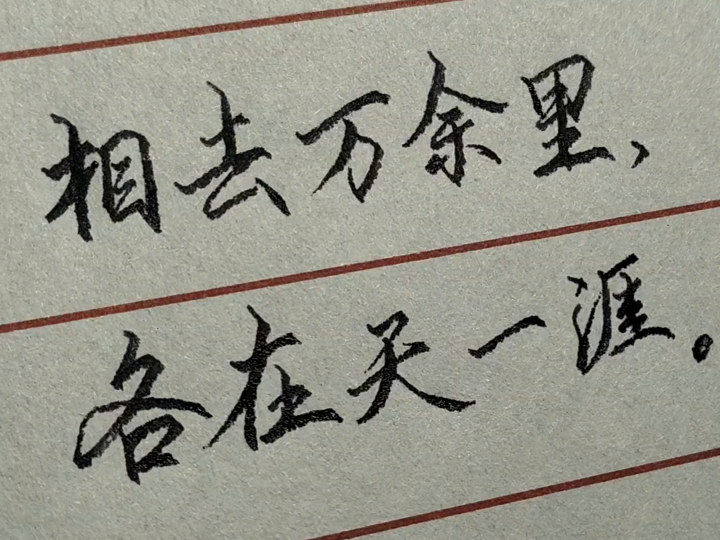 相去万余里、
各在天一涯。